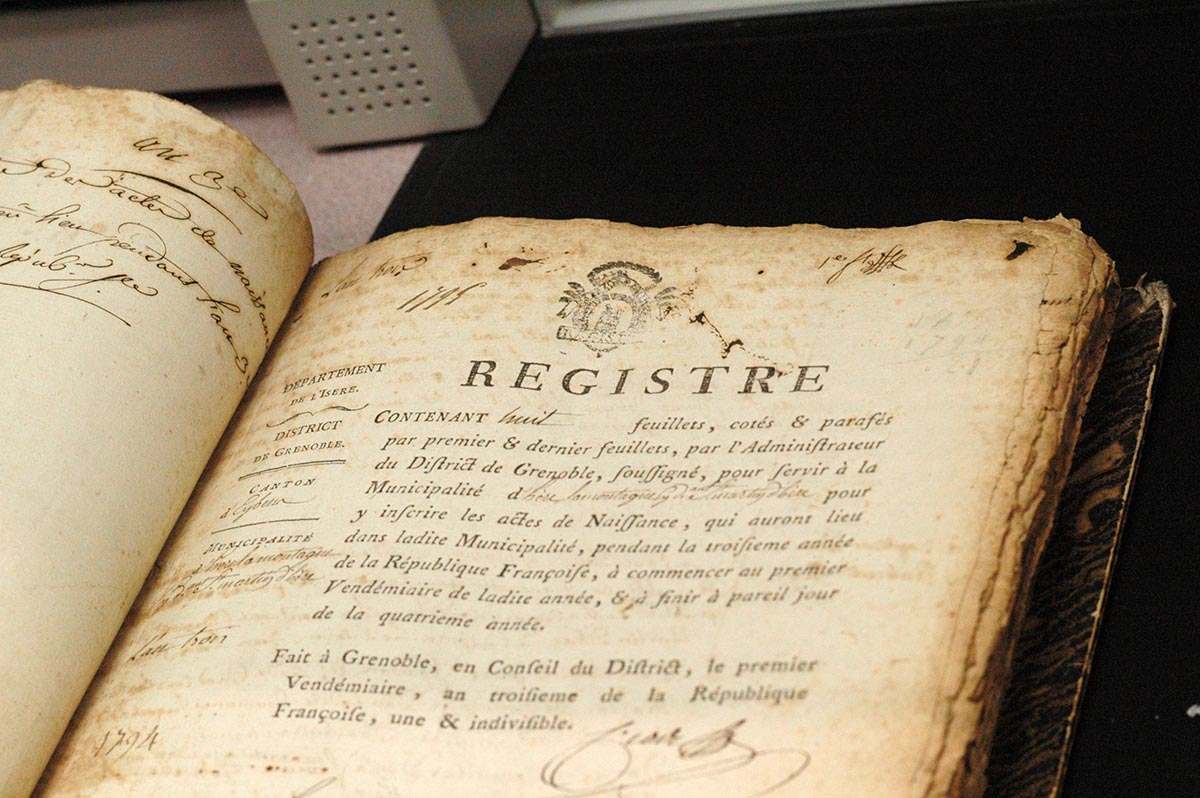 an 3e
actes de naissan
lieu pendant l'an 3
L'an trois
1er f
REGISTRE
DÉPARTEMENT
DE L'ISERE.
DISTRICT
DE GRENOBLE.
CANTON
d'Eybens
MUNICIPALITÉ
d'herbeys la montagne
L'an trois
1794
CONTENANT huit feuillets, cotés & parafés
par premier & dernier feuillets, par l'Adminiſtrateur
du Diſtrict de Grenoble, ſouſſigné, pour ſervir à la
Municipalité d' la montagne pour
y inſcrire les actes de Naiſſance, qui auront lieu
dans ladite Municipalité, pendant la troiſieme année
de la République Françoiſe, à commencer au premier
Vendémiaire de ladite année, & à finir à pareil jour
de la quatrieme année.
Fait à Grenoble, en Conſeil du Diſtrict, le premier
Vendémiaire, an troiſieme de la République
Françoiſe, une & indiviſible.